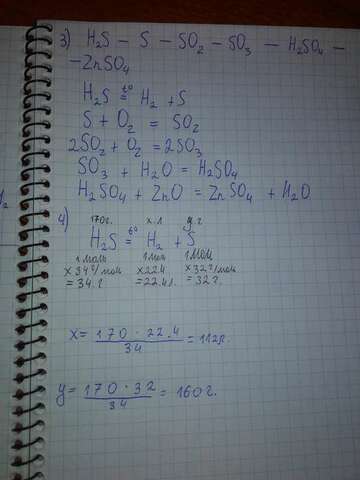 3) H₂S – S – SO₂ – SO₃ – H₂SO₄ –
– ZnSO₄
H₂S t°= H₂ + S
S + O₂ = SO₂
2SO₂ + O₂ = 2SO₃
SO₃ + H₂O = H₂SO₄
H₂SO₄ + ZnO = ZnSO₄ + H₂O
4) 170г. х.л у.г
H₂S t°= H₂ + S
1 моль 1 моль 1 моль
х34г/моль х22.4 х32г/моль
= 34.г =22.4л. = 32 г.
x = 170 · 22.4 / 34 = 112л.
y = 170 · 32 / 34 = 160г.